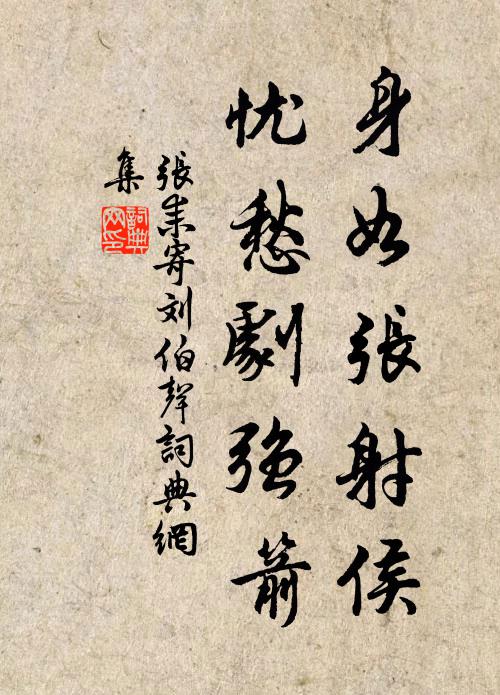 身如張射侯
忧愁劇強箭
張耒寄刘伯聲詞典網
集
詞典
网印